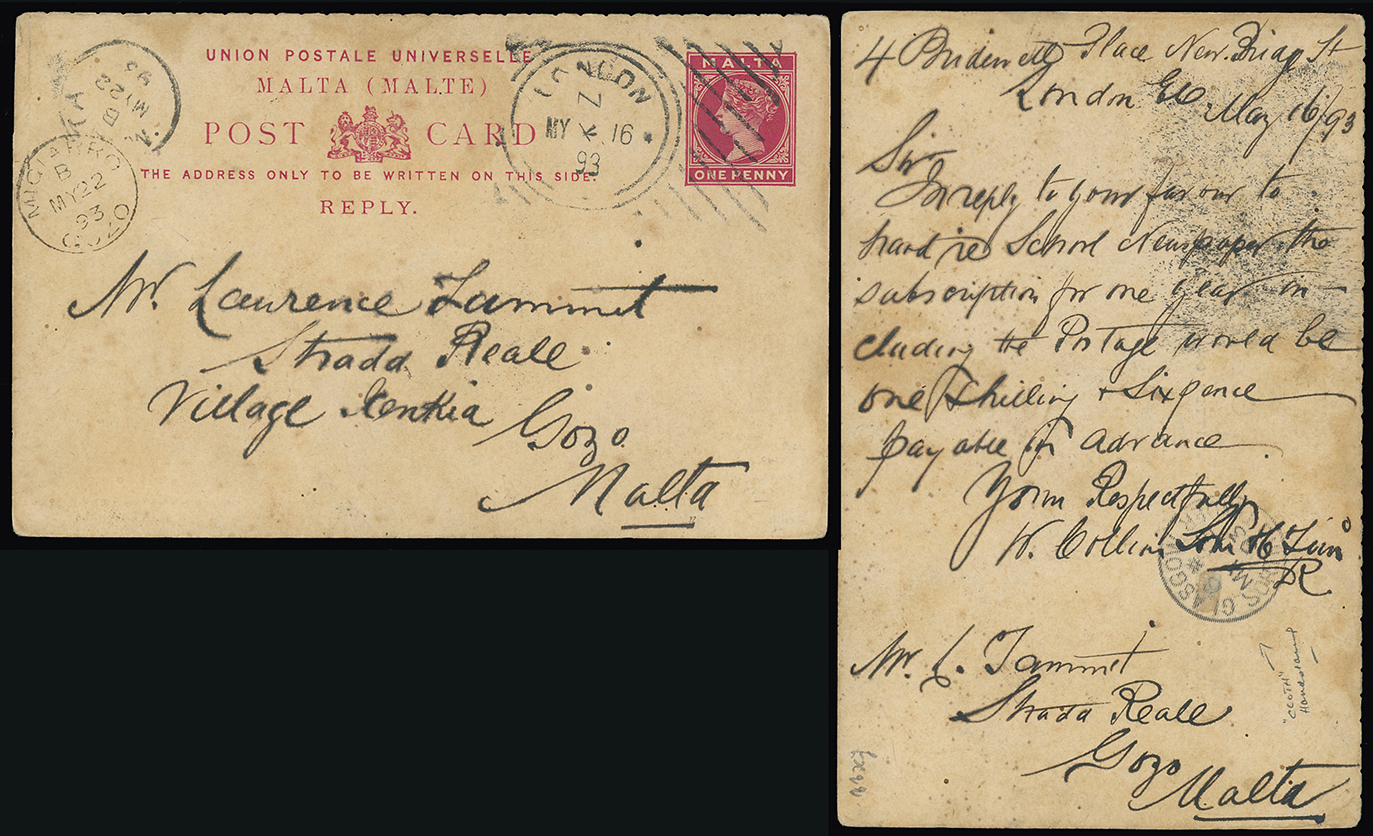 UNION POSTALE UNIVERSELLE
MALTA (MALTE)
POST CARD
THE ADDRESS ONLY TO BE WRITTEN ON THIS SIDE.
REPLY.
MALTA
ONE PENNY
LONDON
Z
MY 16
93
B
MY 22
93
MIGIARRO
B
MY 22
93
GOZO
Mr. Laurence Tammit
Strada Reale
Village Xenkia
Gozo
Malta
4 Bridewell Place New Bridg St
London EC
May 16/93
Sir
In reply to your favour to
hand re School Newspaper the
subscription for one year in-
cluding the Postage would be
one Shilling + Sixpence
payable in advance
Yours Respectfully
W. Collins Sons & Co
R
GLASGOW
Mr. L. Tammit
Strada Reale
Gozo
Malta
"CLOTH"
Handstamp